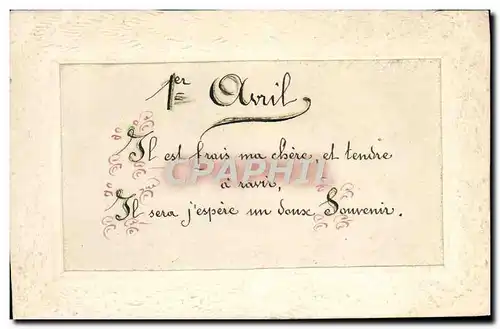 1er Avril
Il est frais ma chère, et tendre
à ravir,
CPAPHIL
Il sera j'espère un doux Souvenir.